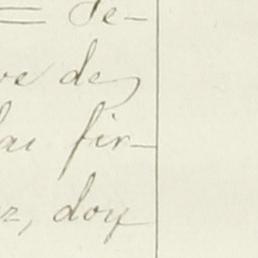 = Se-
ve de
lai fir-
z, doy